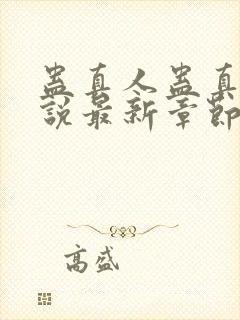 蛊真人蛊真
說最新章節
高盛